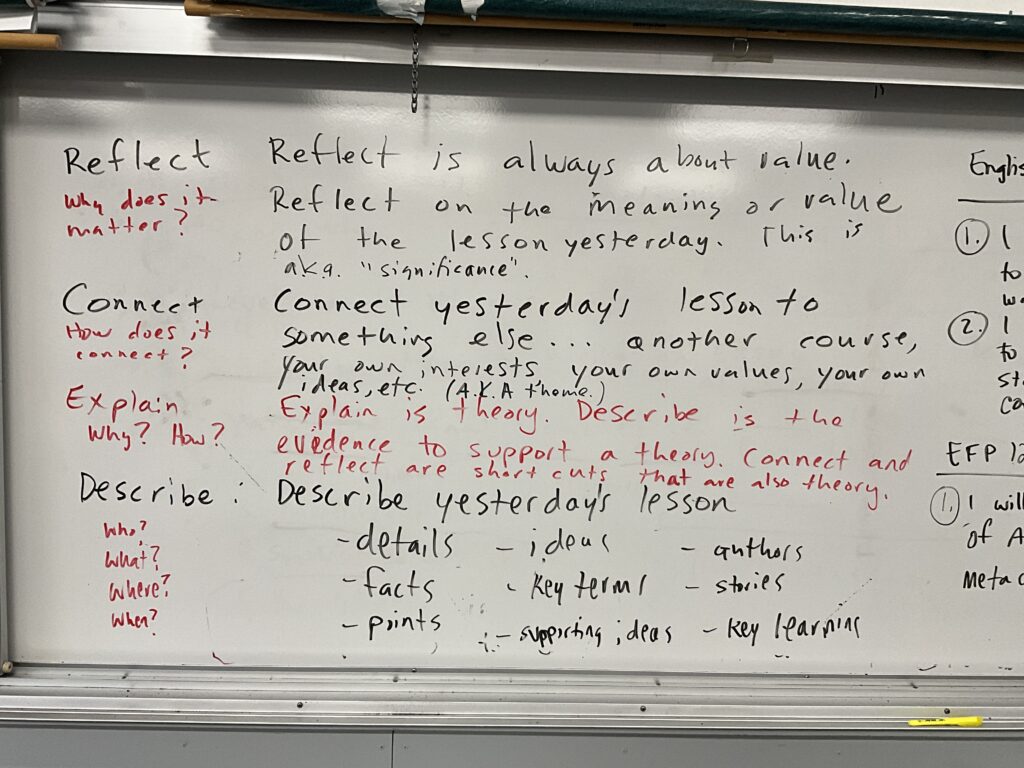 Reflect
Why does it
matter?
Reflect is always about value.
Reflect on the meaning or value
of the lesson yesterday. This is
a.k.a. "significance".
Connect
How does it
connect?
Connect yesterday's lesson to
something else... another course,
your own interests your own values, your own
ideas, etc. (A.K.A theme.)
Explain
Why? How?
Explain is theory. Describe is the
evidence to support a theory. Connect and
reflect are short cuts that are also theory.
Describe:
Who?
What?
Where?
When?
Describe yesterday's lesson
- details - ideas - authors
- facts - key terms - stories
- points - supporting ideas - key learning
Englis
1. I
to
2. I
to
EFP 12
1. I will
of A
metac